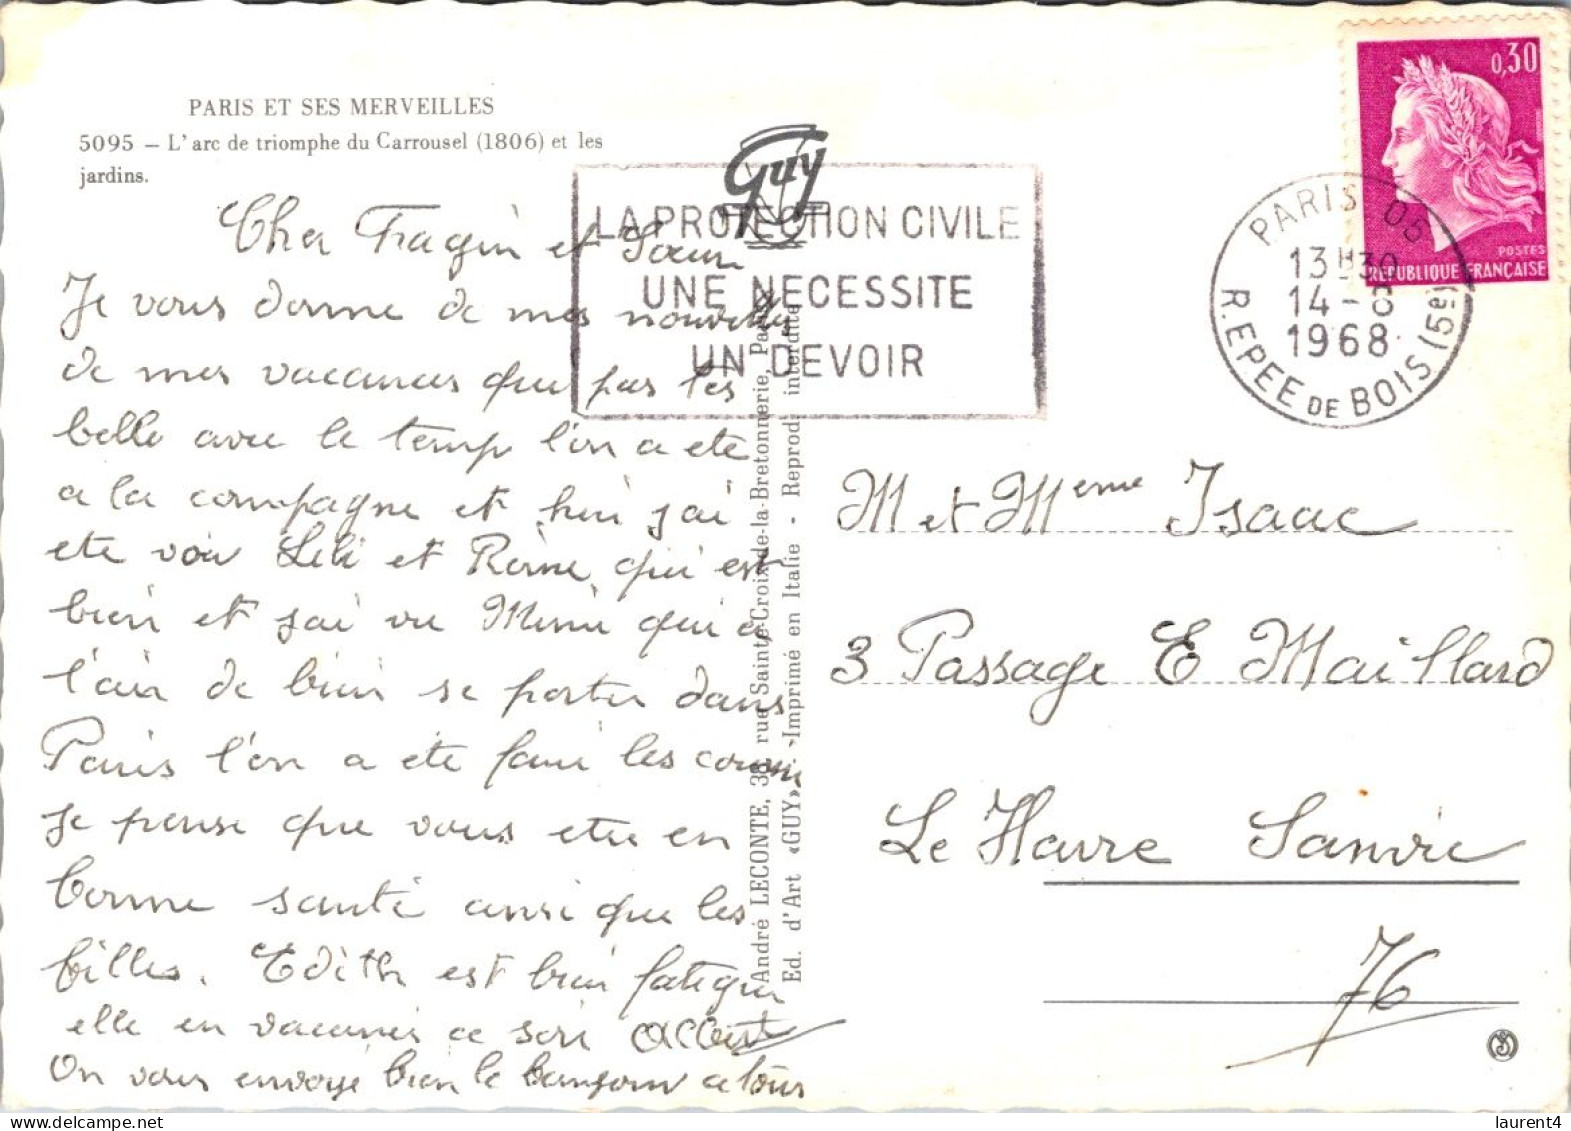 PARIS ET SES MERVEILLES
5095 – L'arc de triomphe du Carrousel (1806) et les
jardins.
Guy
LA PROTECTION CIVILE
UNE NECESSITE
UN DEVOIR
0,30
POSTES
REPUBLIQUE FRANÇAISE
PARIS 05
13H30
14-8
1968
R. EPEE DE BOIS (5e)
Cher Fragin et Sœur
Je vous donne de mes nouvelles
de mes vacances que pas tes
belle avec le temp l'on a ete
a la compagne et hier j'ai
ete voir Lili et Reine, qui est
bien et j'ai vu Mimi qui a
l'air de bien se porter dans
Paris l'on a ete faire les course
je pense que vous ete en
bonne santé ainsi que les
filles. Edith est bien fatiguer
elle en vacances ce soir Albert
On vous envoye bien le bonjour a tous
André LECONTE, 38, rue Sainte-Croix-de-la-Bretonnerie, Paris
Ed. d'Art «GUY» - Imprimé en Italie - Reprod. interdite
M et Meme Isaac
3 Passage E Maillard
Le Havre Sanvic
76
laurent4